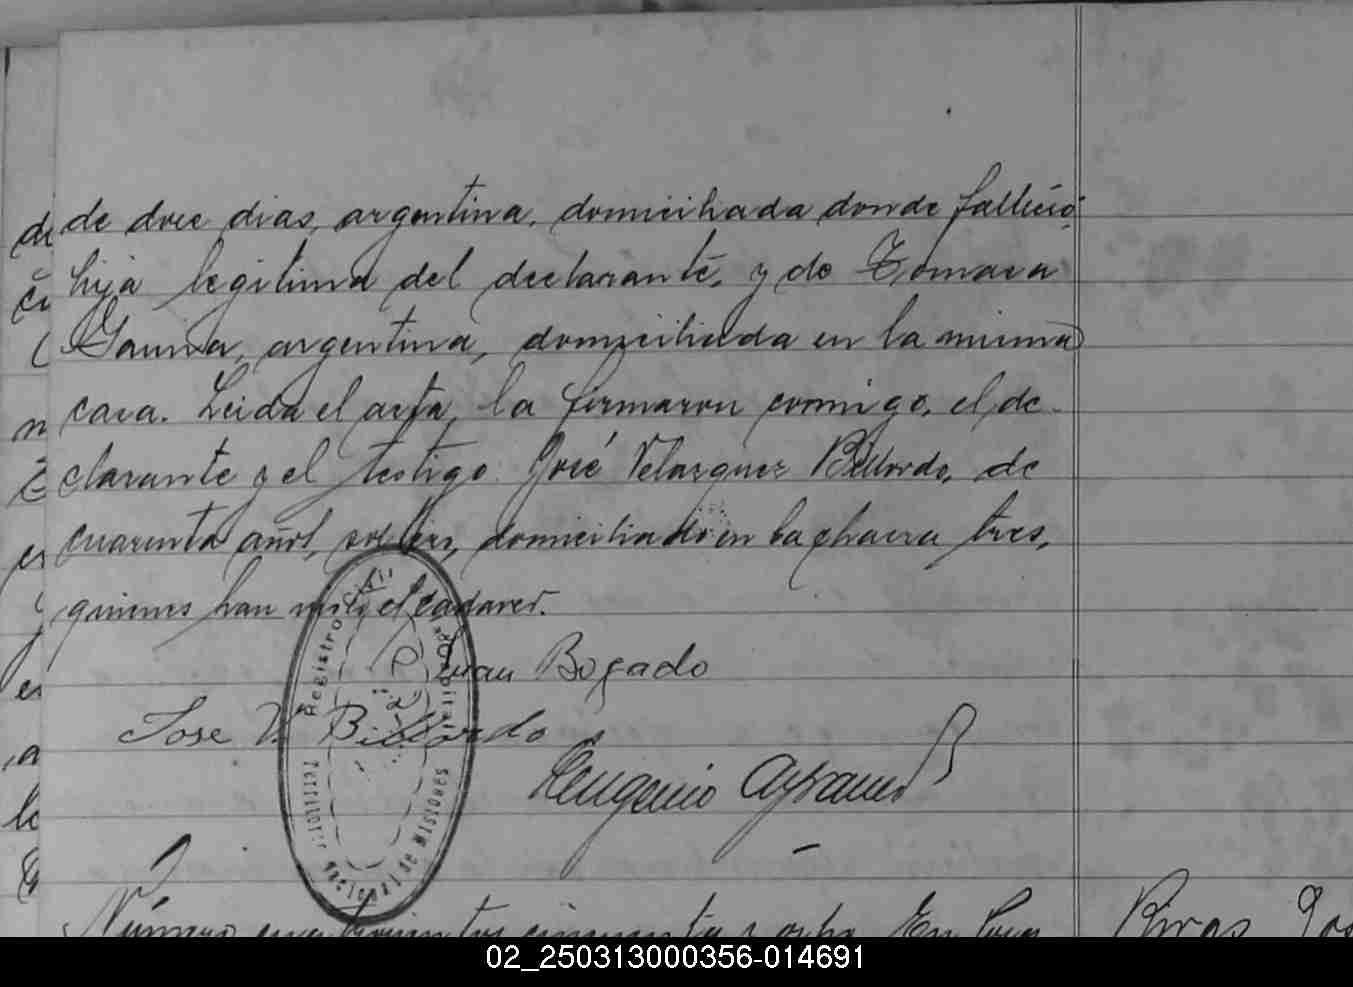 de doce dias, argentina, domiciliada donde falleció,
hija legitima del declarante, y de Tomasa
Gauna, argentina, domiciliada en la misma
casa. Leida el acta, la firmaron conmigo, el de-
clarante y el testigo José Velazquez Billordo, de
cuarenta años, soltero, domiciliado en la chacra tres,
quienes han visto el cadaver.
Juan Bogado
Jose V. Billordo
Eugenio
Registro Civil
Territorio Nacional de Misiones
Número cuatrocientos cincuenta y ocho. En Posa
Rivas Jos
02_250313000356-014691